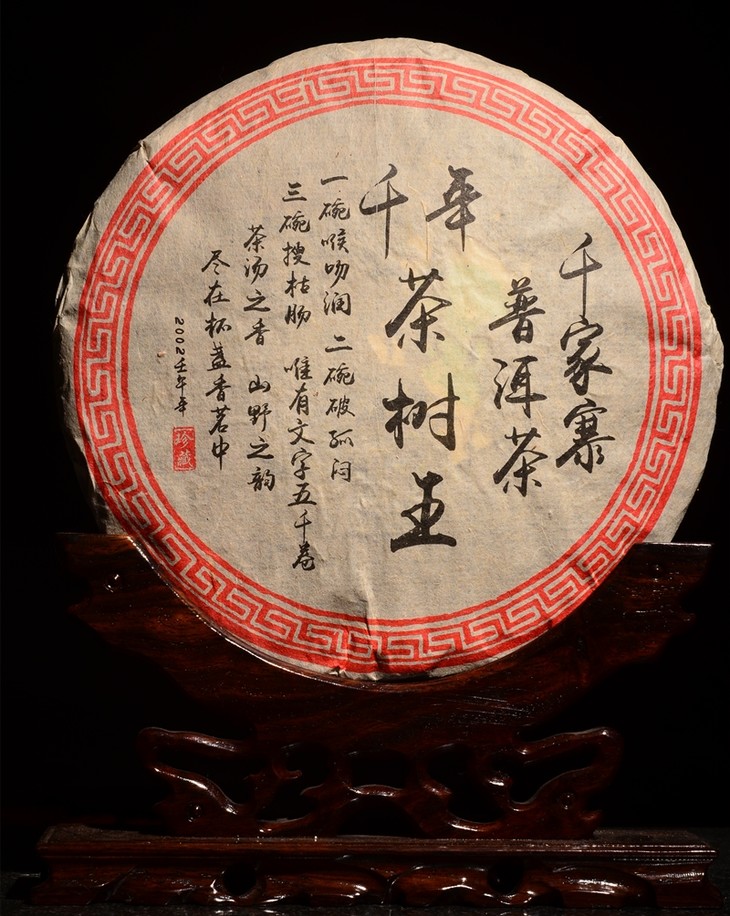 千家寨
普洱茶
千年
茶树王
一碗喉吻润 二碗破孤闷
三碗搜枯肠 唯有文字五千卷
茶汤之香 山野之韵
尽在杯盏香茗中
2002壬午年
珍藏